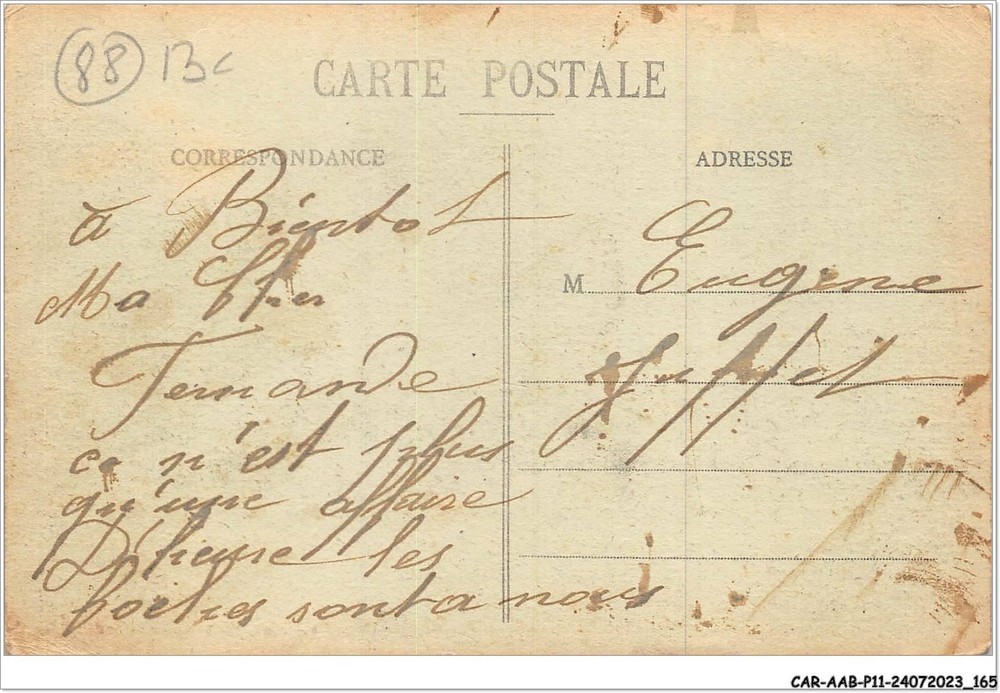 88 Bc
CARTE POSTALE
CORRESPONDANCE
ADRESSE
à Bientot
Ma Cher
Fernande
ce n'est plus
qu'une affaire
D'heure les
boches sont a nous
M Eugene
CAR-AAB-P11-24072023_165